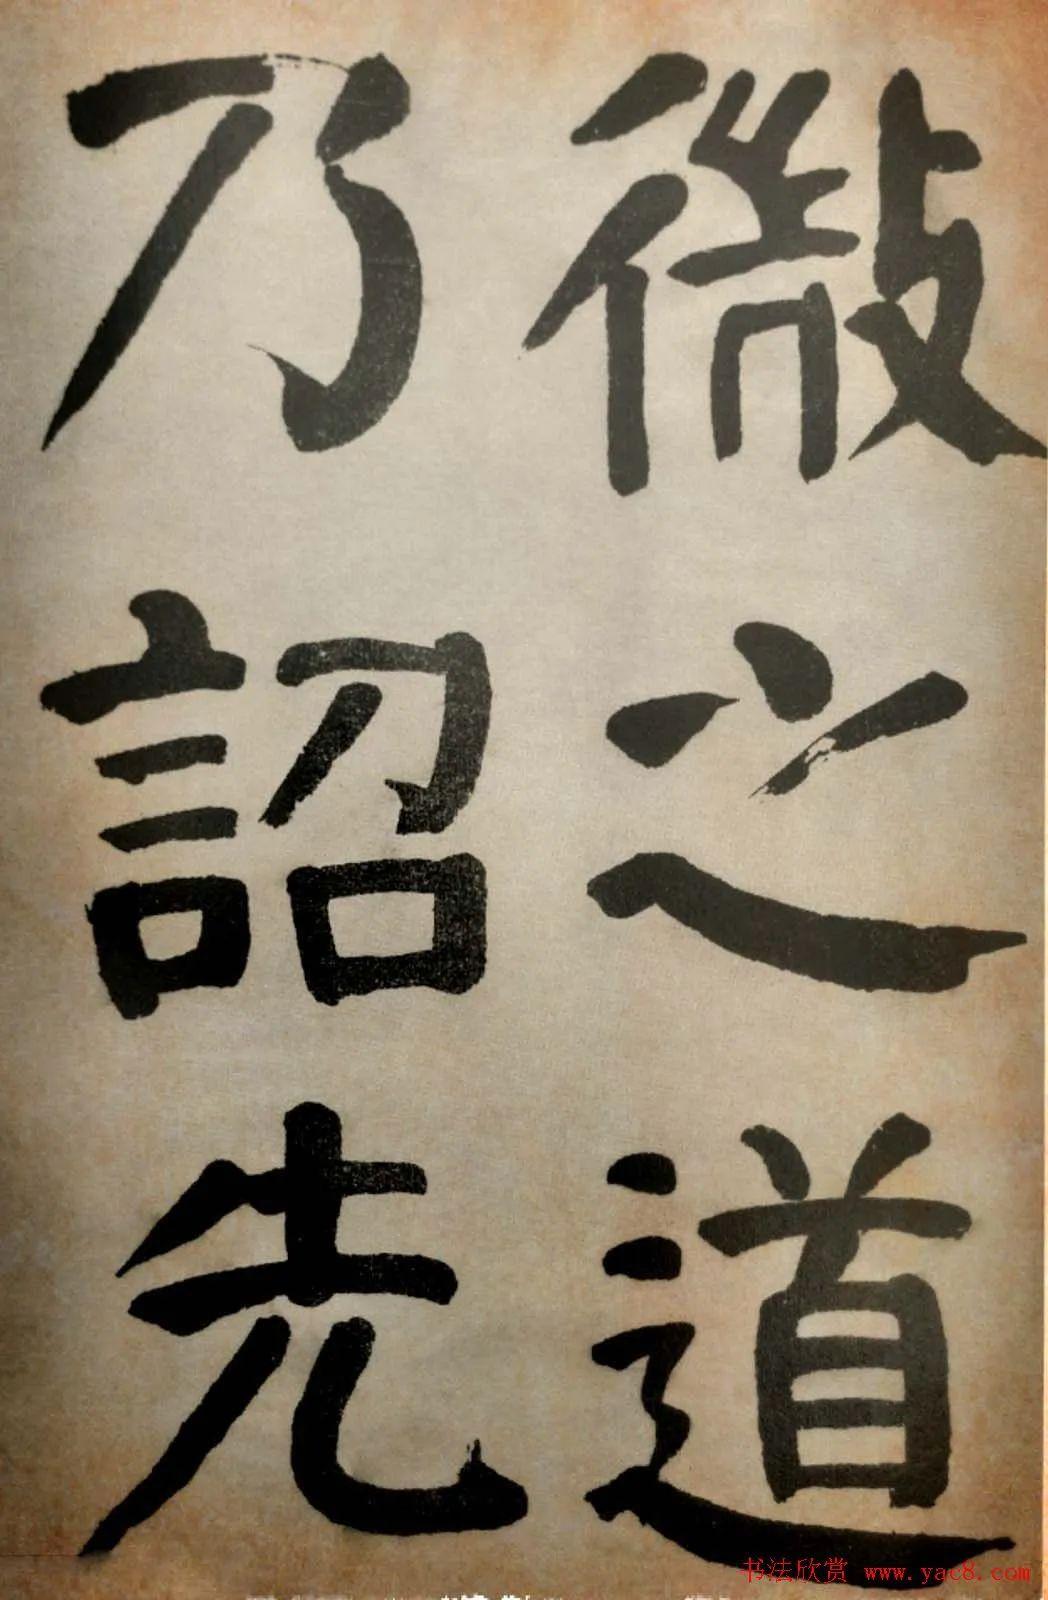 微之道
乃詔先
书法欣赏 www.yac8.com